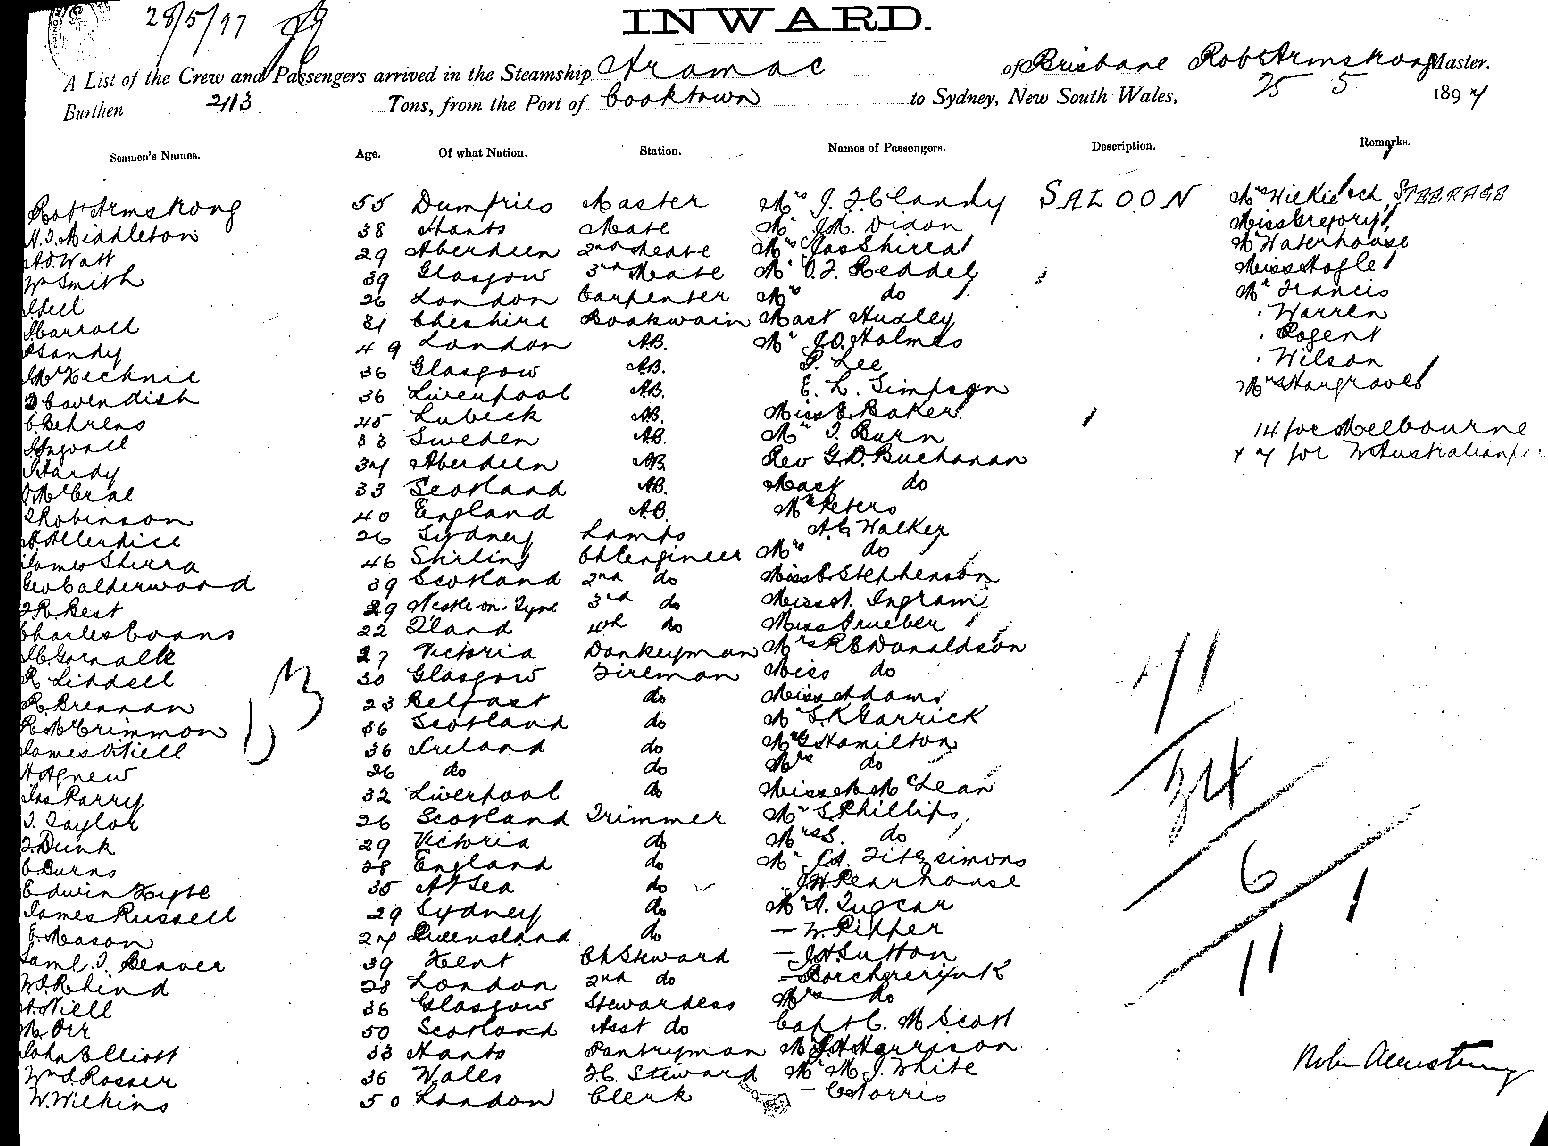 28/5/97
INWARD.
A List of the Crew and Passengers arrived in the Steamship Aramac of Brisbane Robt Armstrong Master.
Burthen 2113 Tons, from the Port of Cooktown to Sydney, New South Wales, 25 5 1897
Seamen's Names. Age. Of what Nation. Station. Names of Passengers. Description. Remarks.
Robt Armstrong 55 Dumfries Master Mrs J. F. Clandy SALOON Mrs STEERAGE
Middleton 38 Hants Mate Mr J.M. Dixon Miss Gregory
A.D. Watt 29 Aberdeen 2nd Mate Mrs Jas Shirra Mr Waterhouse
Wm Smith 39 Glasgow 3rd Mate Mr O.F. Reddel Miss
Hill 26 London Carpenter Mrs do Mr Francis
Carroll 31 Cheshire Boatswain Mast Huxley Warren
Handy 49 London A.B. Mr J.O. Holmes
McKechnie 36 Glasgow A.B. Lee Wilson
Cavendish 36 Liverpool A.B. E. L. Simpson Mrs Hargraves
C Behrens 45 Lubeck A.B. Miss E. Baker
33 Sweden A.B. Mr J. Burn 14 for Melbourne
Hardy 34 Aberdeen A.B. Rev G.D. Buchanan + 7 for W Australian
33 Scotland A.B. Mast do
Robinson 40 England A.B. Mr Peters
Allerdice 26 Sydney Lamps A.G. Walker
James Shirra 46 Stirling Ch Engineer Mrs do
Geo Calderwood 39 Scotland 2nd do Miss E Stephenson
J R Best 29 Ncstle on Tyne 3rd do Miss A. Ingram
Charles Evans 22 Zland 4th do Miss Grueber
27 Victoria Donkeyman Mrs R E Donaldson
R Liddell 30 Glasgow Fireman Miss do
R. Brennan 23 Belfast do Miss Adams
R. McCrimmon 36 Scotland do Mr S.K Garrick
James O'Niell 36 Ireland do Mr G Hamilton
H Agnew 26 do do Mrs do
Jas Parry 32 Liverpool do Miss M McLean
J. Taylor 26 Scotland Trimmer Mr S. Phillips
J. Dunk 29 Victoria do Mrs S. do
C Burns 28 England do Mr J.A. Fitzsimons
Edwin Kyte 35 At Sea do J.W. Pearhouse
James Russell 29 Sydney do Mr A.
J. Mason 24 Queensland do — W. Pepper
Saml J. Denver 39 Kent Ch Steward — J H Sutton
W.J. Rhind 28 London 2nd do — Borchererfink
A. Niell 36 Glasgow Stewardess Mrs do
M Orr 50 Scotland Asst do Capt C. M Scott
John Elliott 33 Hants Pantryman Mr J H Harrison
Wm J. Rosser 36 Wales F.C. Steward Mr M. J. White
W. Wilkins 50 London Clerk — C Norris
13
11
34
6
11
1
Robt Armstrong